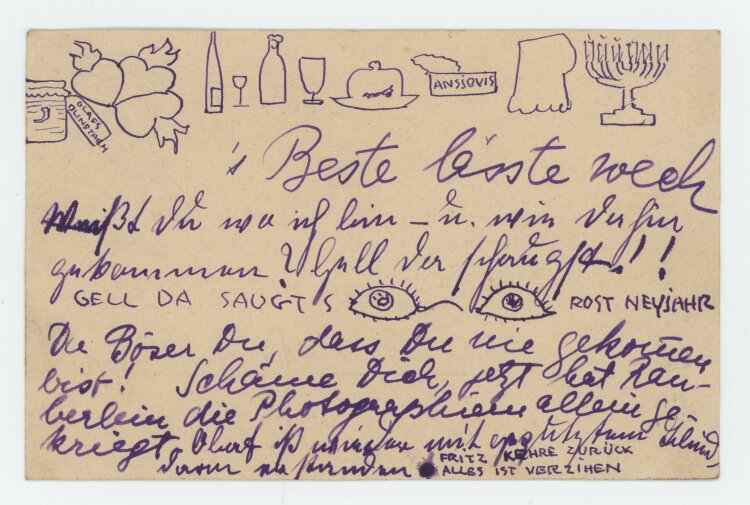 OLAFS
BLINDTARM
ANSJOVIS
's Beste lässte wech
Weißt Du wo ich bin – u. wie daher
gekommen? Gell da schaugst!!
GELL DA SAUGTS ROST NEYJAHR
Du Böser Du, dass Du nie gekomen
bist! Schäme Dich, jetzt hat Rau-
berlein die Photographien allein ge
kriegt. Olaf ist wieder mit geputztem Blind
darm
FRITZ KEHRE ZURÜCK
ALLES IST VERZIHEN